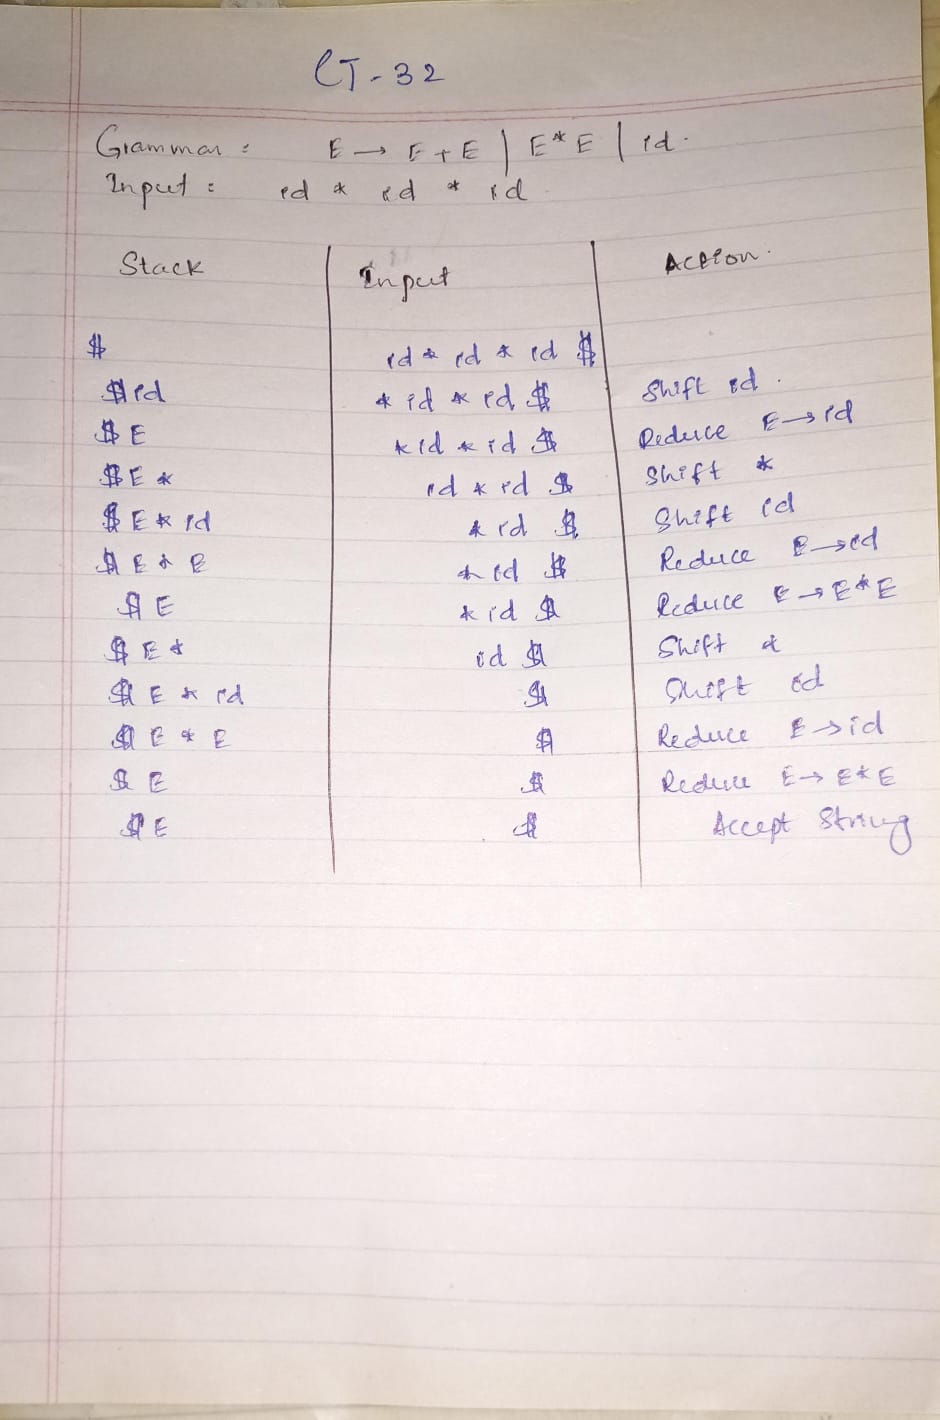 CT-32
Grammar : E → E + E | E * E | id.
Input : id * id * id
Stack Input Action.
$ id * id * id $
$ id * id * id $ Shift id.
$ E * id * id $ Reduce E → id
$ E * id * id $ Shift *
$ E * id * id $ Shift id
$ E * E * id $ Reduce E → id
$ E * id $ Reduce E → E * E
$ E * id $ Shift *
$ E * id $ Shift id
$ E * E $ Reduce E → id
$ E $ Reduce E → E * E
$ E $ Accept String